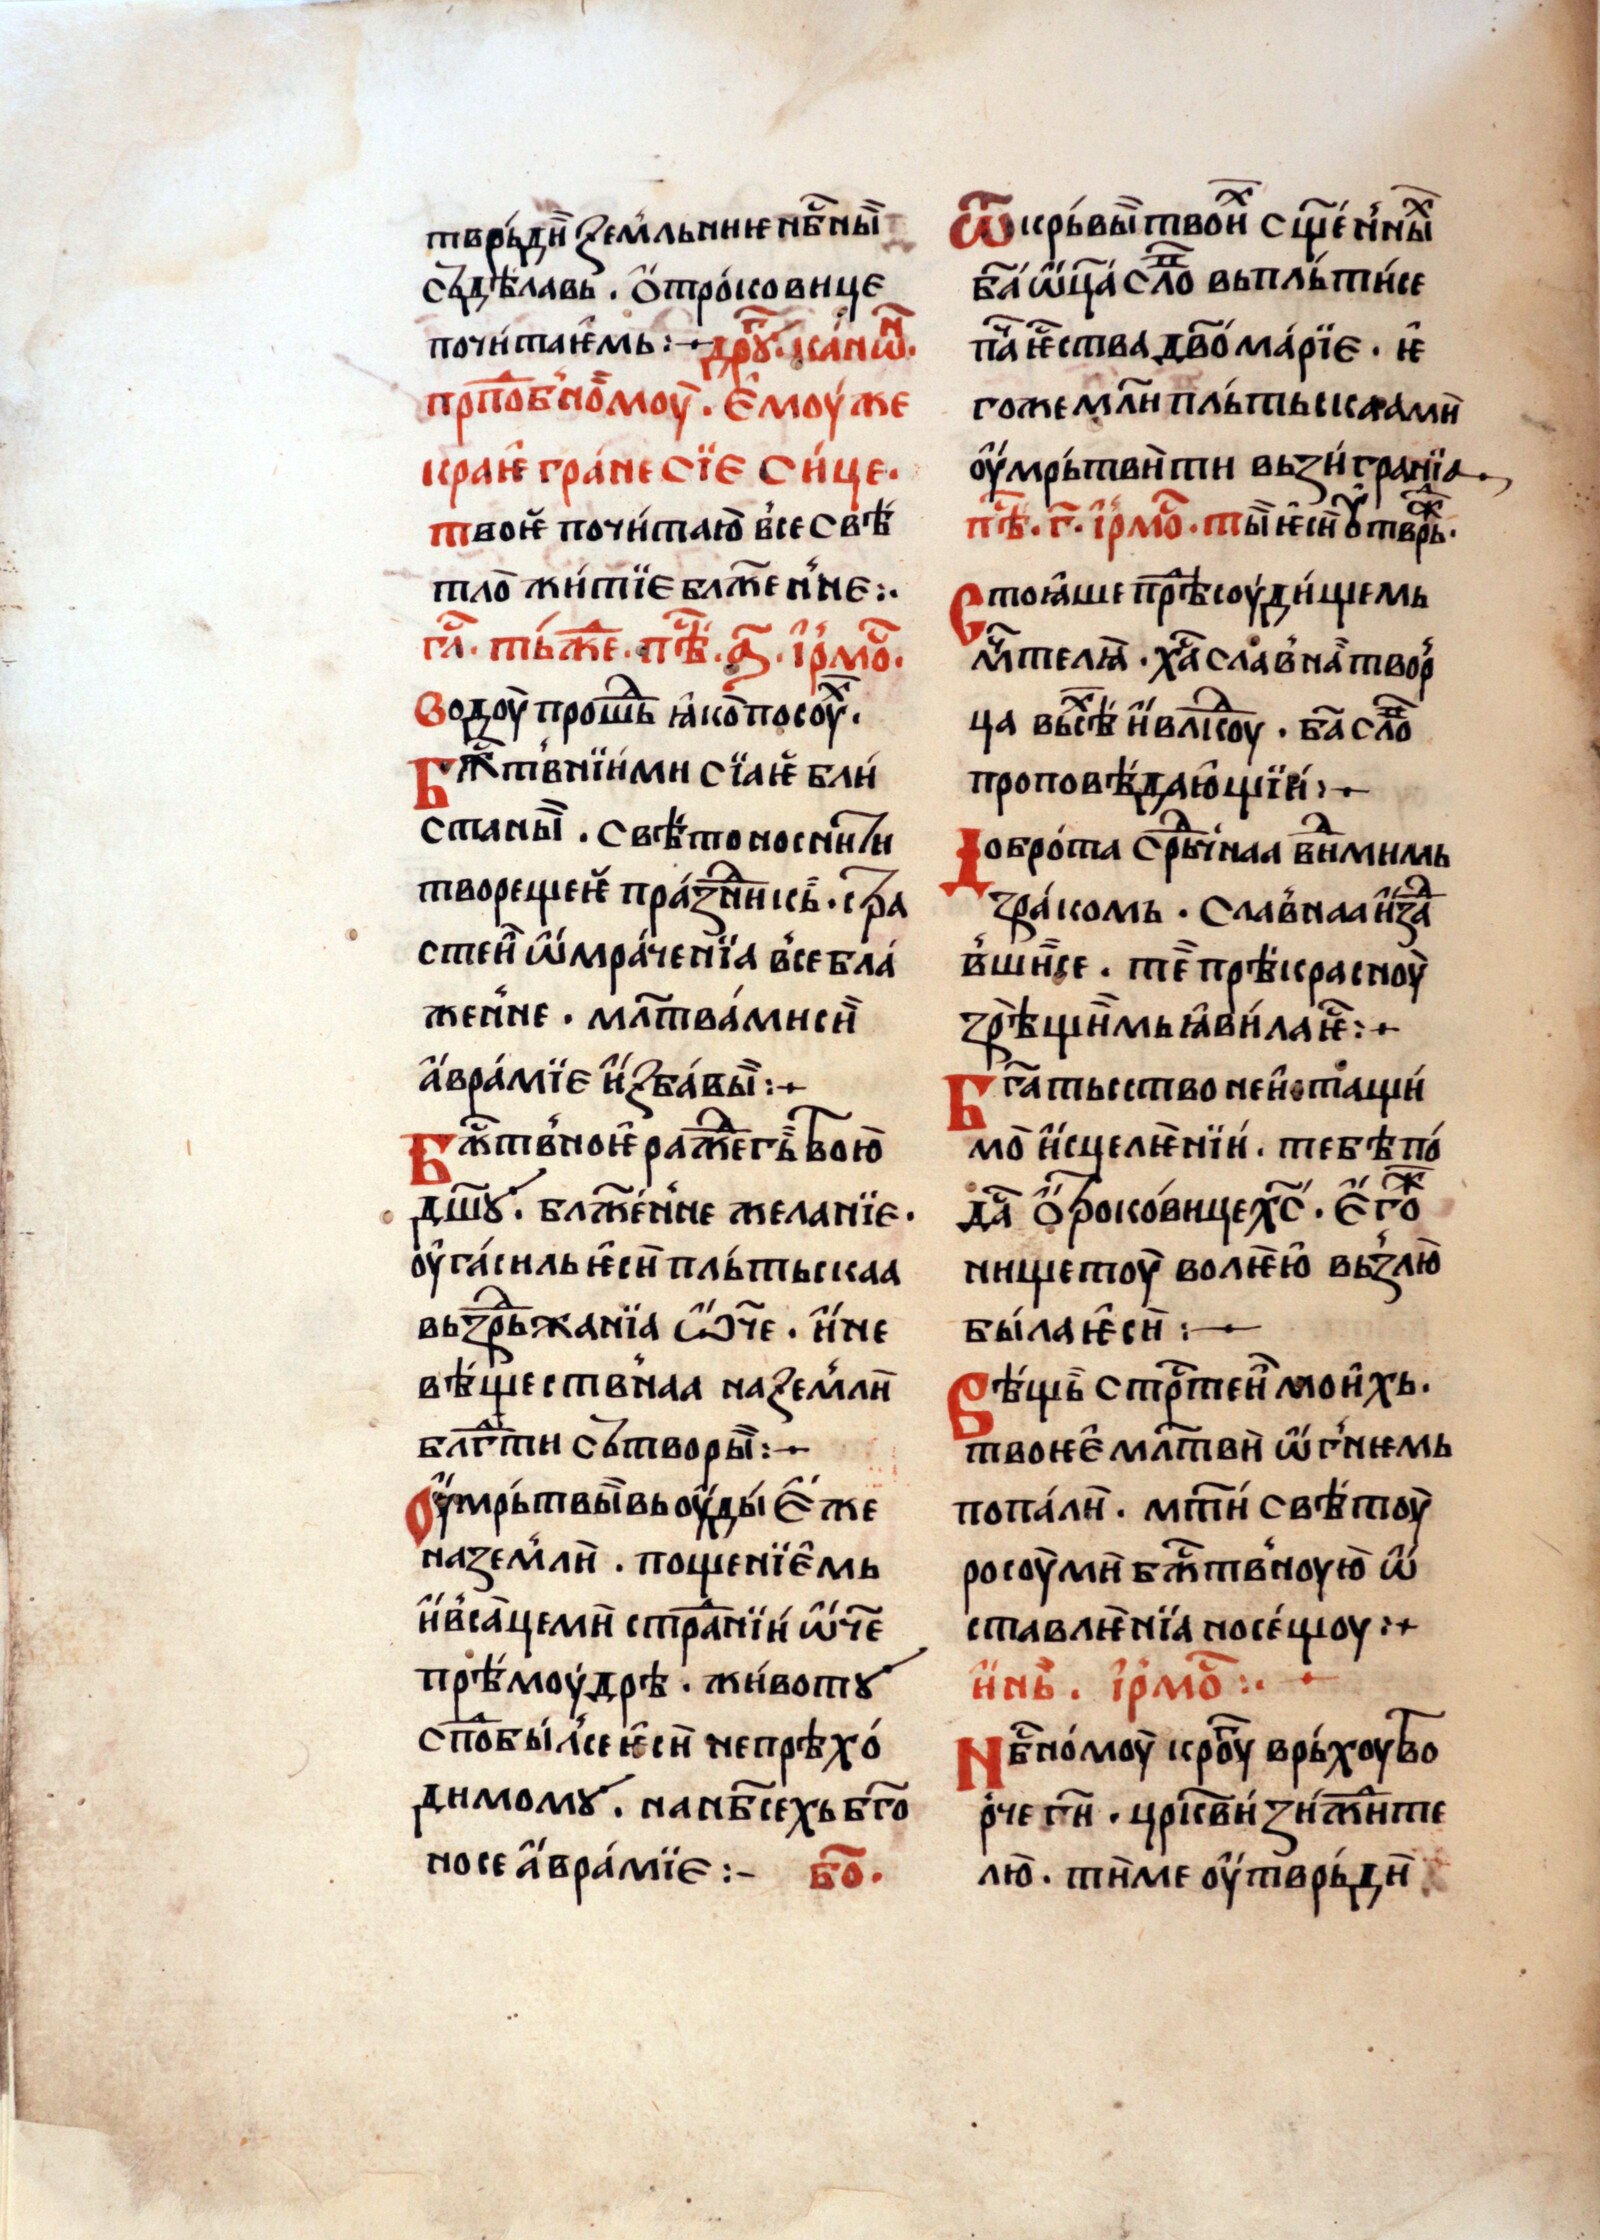 тврьди ꙁемльниѥ нбⷭ҇ныи
съдѣлавь. ѻтроковице
почитаѥмь:~ дрꙋгⷭ. канѡⷩ.
прⷣпобⷩомоу. ѥмоуже
краѥ гранесїе сице.
твоѥ почитаю все свѣ
тло житїе блаⷤенне:.
глⷭ. тьже. пѣⷭ. а҃. їрмоⷭ.
Водоу прошⷣь ꙗко посоуⷯ.
Бжⷭ҇твнїими сїаѥ бли
станыи. свѣтоносничьи
творещеѥ праꙁⷣникь. стра
стеи ѿ мраченїа все бла
женне. млт҃вами си
аврамїе иꙁбавы:~
Бжⷭ҇твноѥ ражⷣегь твою
дш҃ꙋ. блаⷤенне желанїе.
оугасиль ѥси пльтьскаа
вьꙁдрьжанїа ѡч҃е. и не
вѣществнаа на ꙁемли
блгⷣти сьтворы:~
Оумрьтвывь оуды ѥже
на ꙁемли. пощенїемь
и всацеми странїи ѡч҃е
прѣмоудрѣ. животꙋ
спⷣобылсе ѥси непрѣхо
димомꙋ. на нб҃сехь бг҃о
носе аврамїе:~ бо҃.
Ѿкрьвы твоиⷯ сщ҃енныⷯ
ба҃ ѡц҃а сло҃ вьпльтисе
пⷭ҇ча ѥства дво҃ марїе. ѥ
гоже мл҃и пльтьскаами
оумрьтвити вьꙁигранїа.
пѣⷭ. г҃. їрмоⷭ. ты ѥси оутврьⷤ.
Стоꙗше прⷣѣ соудищемь
мⷱ҇телꙗ. ха҃ славна твор
ца вьсѣⷯ и влⷣкоу. ба҃ сло҃
проповѣдающїи:~
Доброта срⷣьчнаа вⷣимимь
ꙁракомь. славнаа иꙁⷣа
вшисе. те прѣкрасноу
ꙁрѣщимь ꙗвилаѥ:~
Бга҃тьство неистащи
мо исцелѥнїи. тебѣ по
да҃ ѻтроковице хс҃. ѥгоⷤ
нищетоу волѥю вьꙁлю
была ѥси:~
Вѣщь стрⷭ҇теи моихь.
твоѥе млт҃ви ѡгнѥмь
попали. мт҃и свѣтоу
росоу ми бжⷭ҇твноую ѡ
ставлѥнїа носещоу:~
инь. їрмоⷭ:.
Нбⷭ҇номоу кроугⷭ врьхоутво
рче ги҃. црк҃ви ꙁижⷣите
лю. ти ме оутврьди